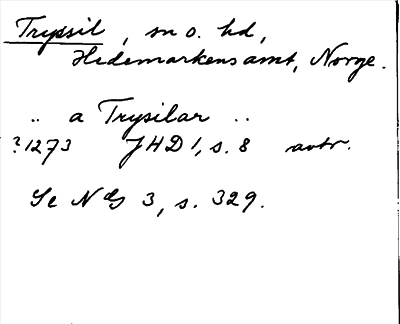 Trysil, sn o. hd,
Hedemarkens amt, Norge.
.. a Trysilar ..
?1273 JHD 1, s. 8 avtr.
Se NG 3, s. 329.